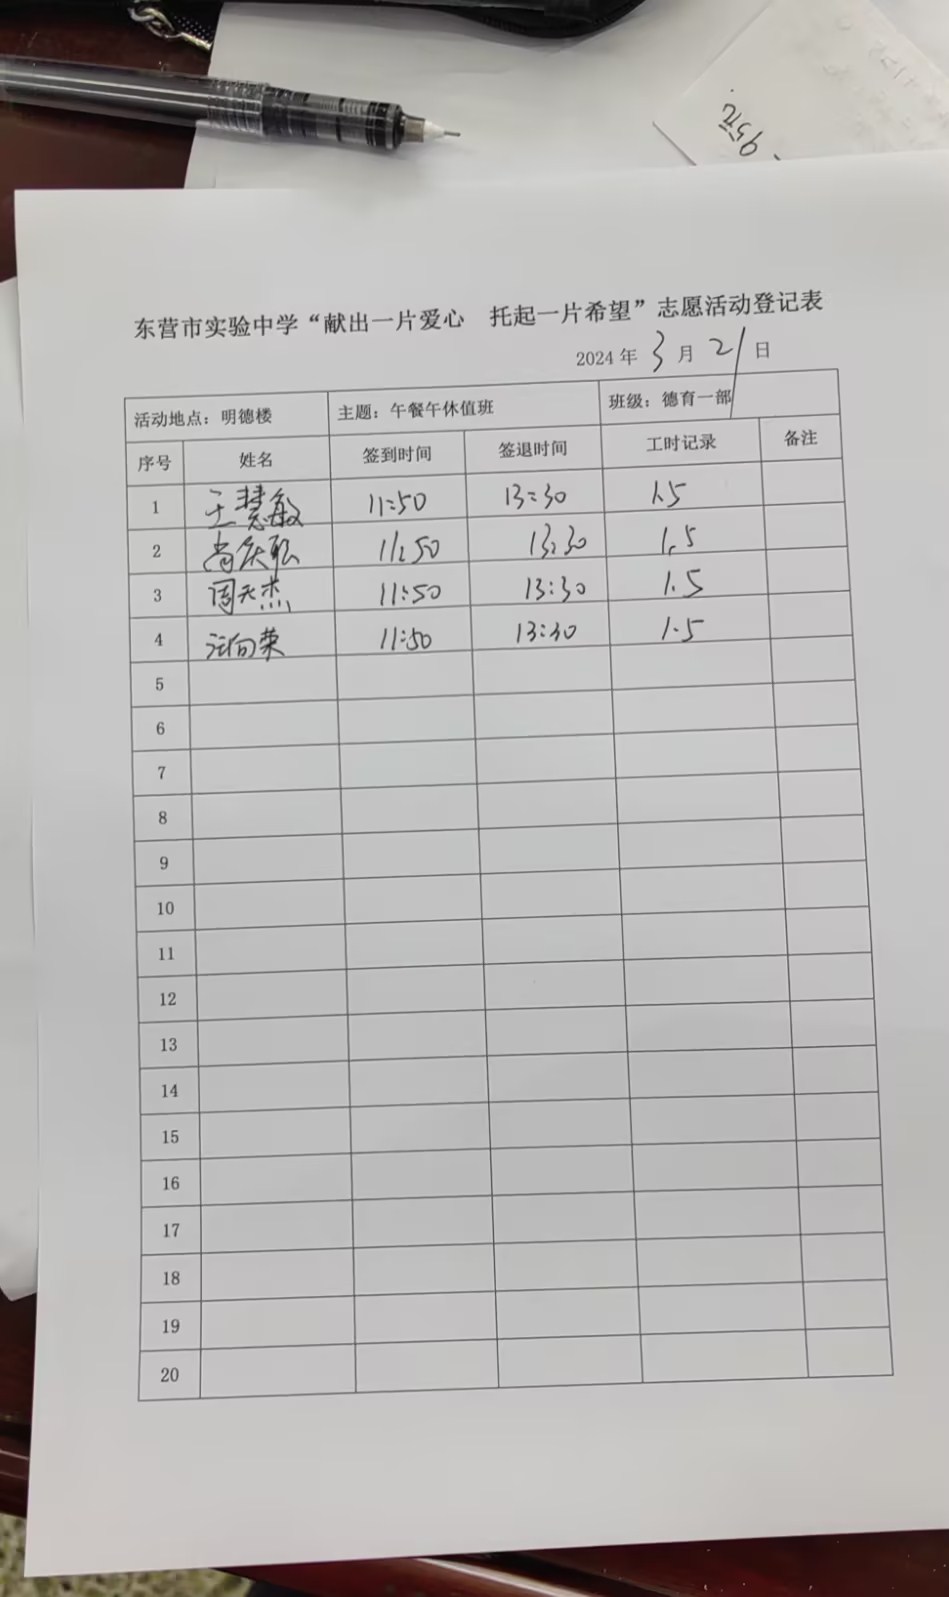 95元
东营市实验中学“献出一片爱心 托起一片希望”志愿活动登记表
2024年 3 月 21 日
活动地点：明德楼 主题：午餐午休值班 班级：德育一部
序号 姓名 签到时间 签退时间 工时记录 备注
1 王慧敏 11:50 13:30 1.5
2 11:50 13:30 1.5
3 周天杰 11:50 13:30 1.5
4 汪向荣 11:50 13:30 1.5
5
6
7
8
9
10
11
12
13
14
15
16
17
18
19
20